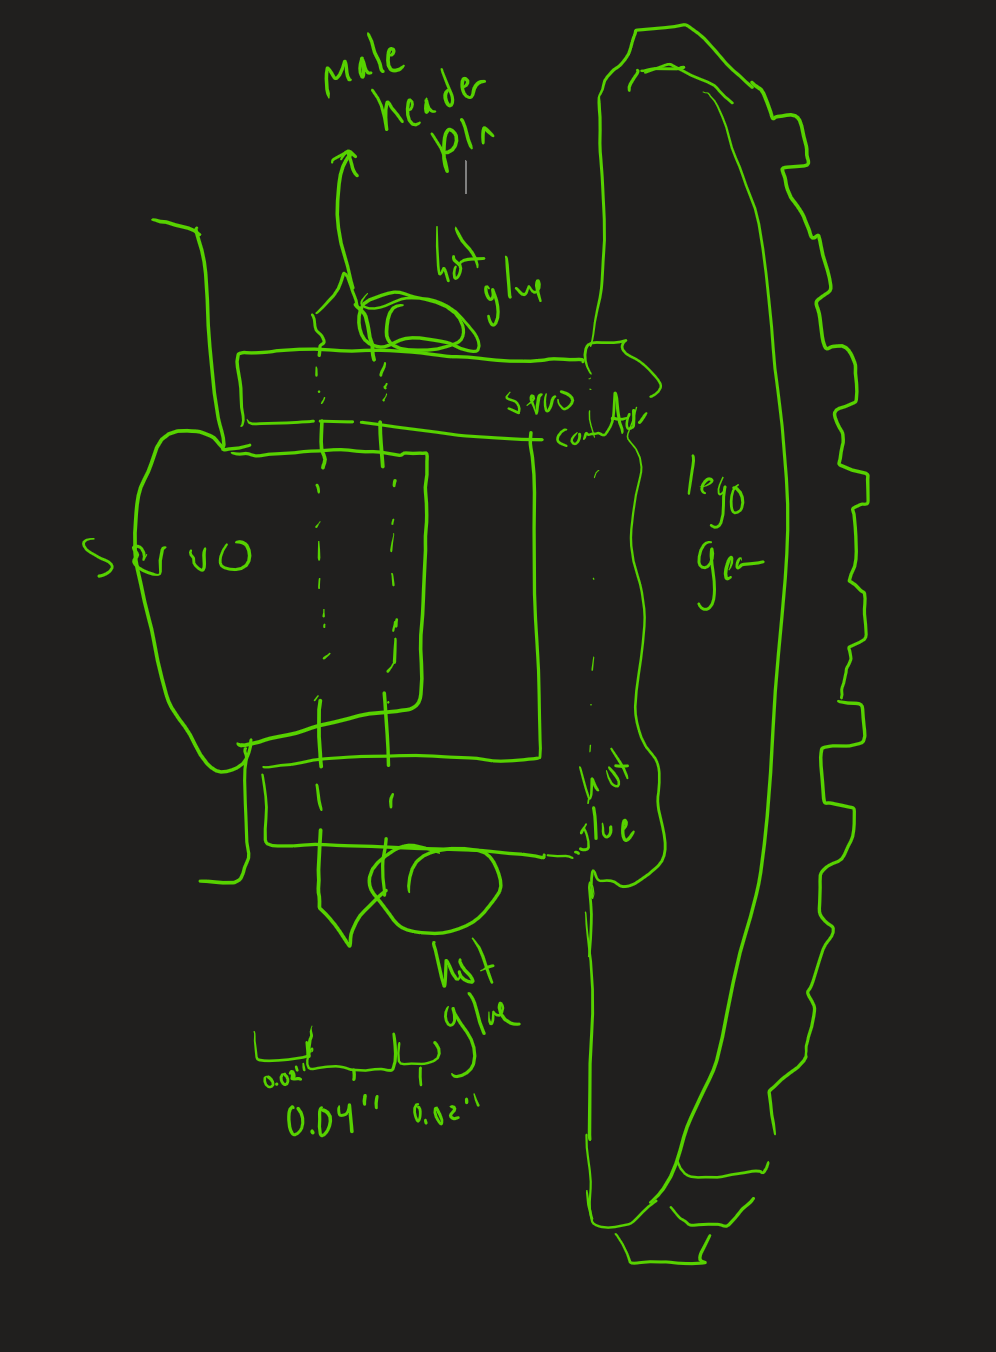 Male
header
pin
hot
glue
servo
connector
lego
gear
servo
hot
glue
hot
glue
0.02"
0.04"
0.02"